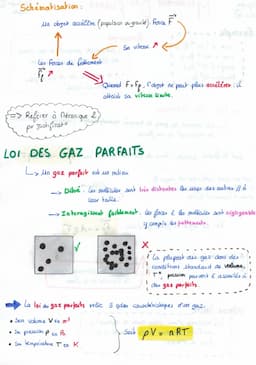 Schématisation :
Un objet accélère (propulsion ou gravité). Force F
Sa vitesse ↗
Les Forces de frottement
Ff ↗
Quand F = Ff, l'objet ne peut plus accélérer : il
atteint sa vitesse limite.
=> Référer à Mécanique 2
pr justificatº
LOI DES GAZ PARFAITS
↳ Un gaz parfait est un milieu
→ Dilué : les molécules sont très distantes les unes des autres //à
leur taille.
→ Interagissent faiblement : les forces des molécules sont négligeables
y compris les frottements.
✓
X
La plupart des gaz dans des
conditions standard de volume,
T, pression peuvent être assimilés à
des gaz parfaits.
La loi des gaz parfaits relie 3 caractéristiques d'un gaz.
• Son volume V → m³
• Sa pression p → Pa
• Sa température T → K
Soit pV = nRT